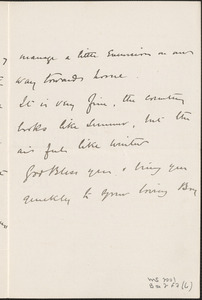 manage a little Excursion on our
way towards home.
It is very fine, the country
looks like Summer, but the
air feels like winter
God Bless you & bring you
quickly to your loving Boy